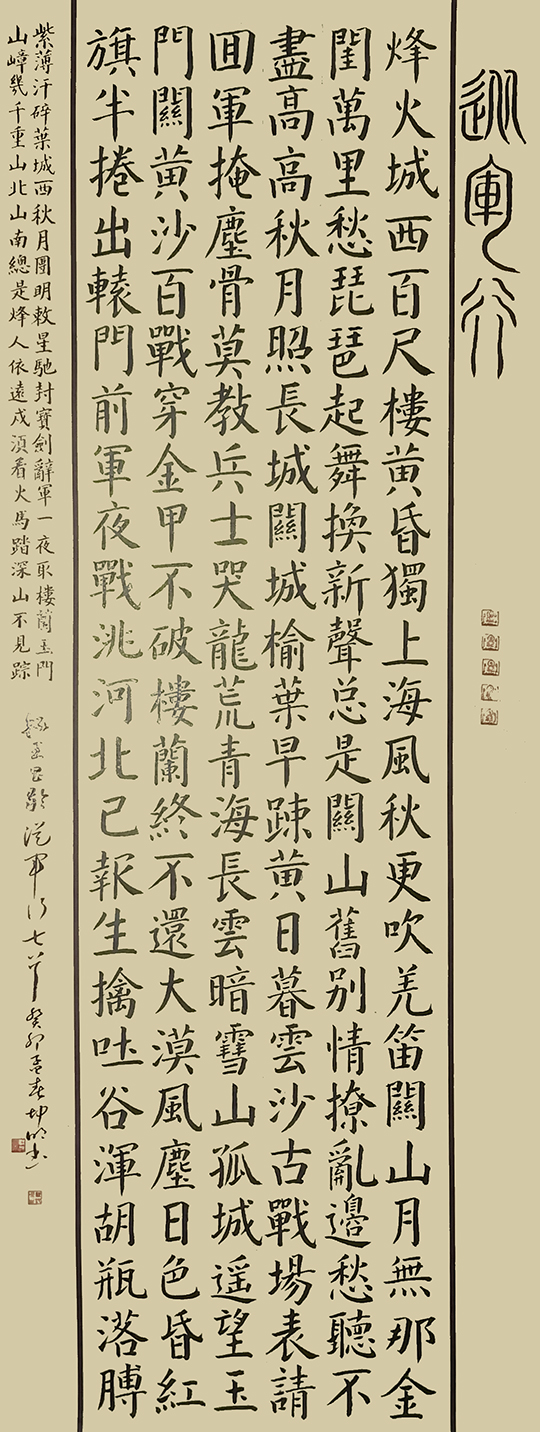 從軍行
烽火城西百尺樓黄昏獨上海風秋更吹羌笛關山月無那金
閨萬里愁琵琶起舞換新聲总是關山舊别情撩亂邊愁聽不
盡高高秋月照長城關城榆葉早踈黄日暮雲沙古戰場表請
囬軍掩塵骨莫教兵士哭龍荒青海長雲暗雪山孤城遥望玉
門關黄沙百戰穿金甲不破樓蘭終不還大漠風塵日色昏紅
旗半捲出轅門前軍夜戰洮河北已報生擒吐谷渾胡瓶落膊
紫薄汗碎葉城西秋月團明敕星馳封寳劍辭軍一夜取樓蘭玉門
山嶂幾千重山北山南總是烽人依遠戍湏看火馬踏深山不見踪
王昌齡從軍行七首 癸卯孟春坤书